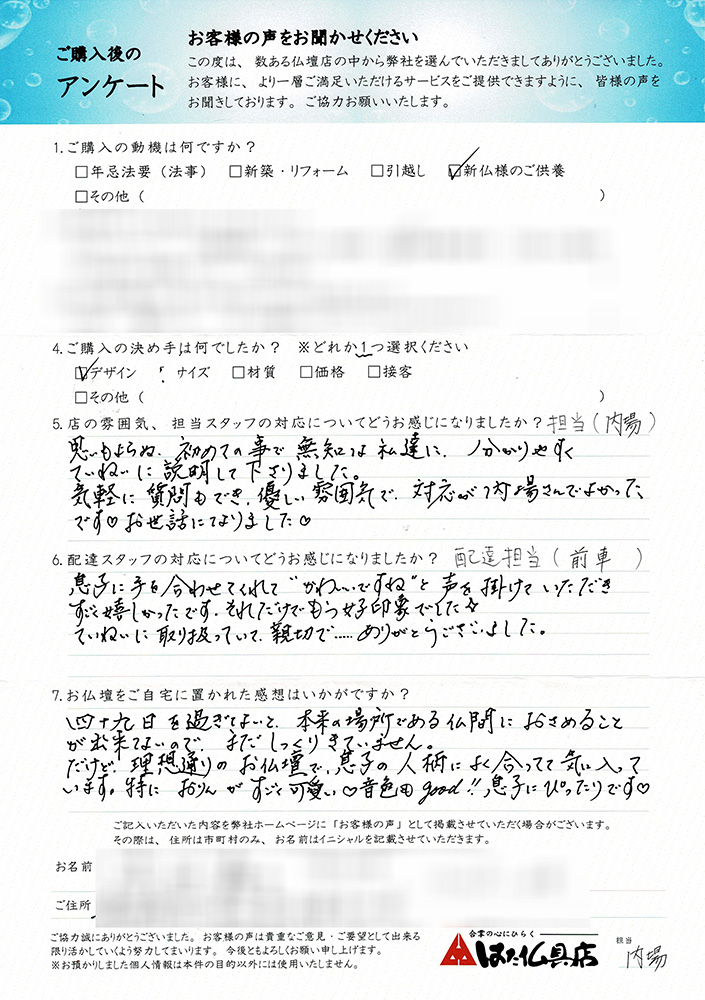 ご購入後の
アンケート
お客様の声をお聞かせください
この度は、数ある仏壇店の中から弊社を選んでいただきましてありがとうございました。
お客様に、より一層ご満足いただけるサービスをご提供できますように、皆様の声を
お聞きしております。ご協力お願いいたします。
1.ご購入の動機は何ですか？
□年忌法要（法事） □新築・リフォーム □引越し ☑新仏様のご供養
□その他（ ）
4.ご購入の決め手は何でしたか？ ※どれか1つ選択ください
☑デザイン サイズ □材質 □価格 □接客
□その他（ ）
5.店の雰囲気、担当スタッフの対応についてどうお感じになりましたか？担当（内場）
思いもよらぬ、初めての事で無知な私達に、分かりやすく
ていねいに説明して下さりました。
気軽に質問もでき、優しい雰囲気で、対応が内場さんでよかった
です♡お世話になりました♡
6.配達スタッフの対応についてどうお感じになりましたか？ 配達担当（前車）
息子に手を合わせてくれて“かわいいですね”と声を掛けていただき
すごく嬉しかったです。それだけでもう好印象でした☆
ていねいに取り扱っていて、親切で.....ありがとうございました。
7.お仏壇をご自宅に置かれた感想はいかがですか？
四十九日を過ぎてないと、本来の場所である仏間におさめること
が出来てないので、まだしっくりきていません。
だけど、理想通りのお仏壇で、息子の人柄によく合ってて気に入って
います。特におりんがすごく可愛い♡音色もgood!!息子にぴったりです♡
ご記入いただいた内容を弊社ホームページに「お客様の声」として掲載させていただく場合がございます。
その際は、住所は市町村のみ、お名前はイニシャルを記載させていただきます。
お名前
ご住所
ご協力誠にありがとうございました。お客様の声は貴重なご意見・ご要望として出来る
限り活かしていくよう努力してまいります。今後ともよろしくお願い申し上げます。
※お預かりしました個人情報は本件の目的以外には使用いたしません。
合掌の心にひらく
はた仏具店
担当
内場